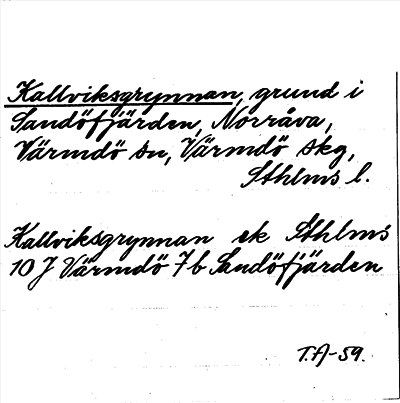 Kallviksgrynnan, grund i
Sandöfjärden, Norråva,
Värmdö sn, Värmdö skg,
Sthlms l.
Kallviksgrynnan ek Sthlms
10 J Värmdö 7b Sandöfjärden
T.A-59.